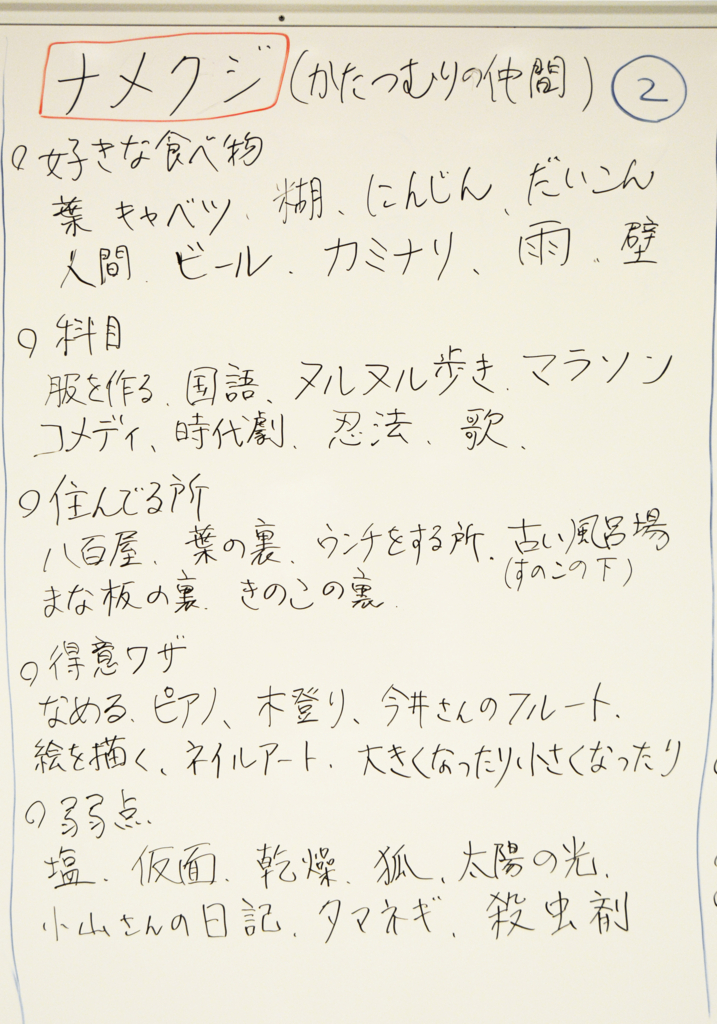 ナメクジ (かたつむりの仲間) ②
○ 好きな食べ物
葉 キャベツ、糊、にんじん、だいこん
人間、ビール、カミナリ、雨、壁
○ 科目
服を作る、国語、ヌルヌル歩き、マラソン
コメディ、時代劇、忍法、歌、
○ 住んでる所
八百屋、葉の裏、ウンチをする所、古い風呂場
(すのこの下)
まな板の裏、きのこの裏
○ 得意ワザ
なめる、ピアノ、木登り、今井さんのフルート、
絵を描く、ネイルアート、大きくなったり小さくなったり
○ 弱点、
塩、仮面、乾燥、狐、太陽の光、
小山さんの日記、タマネギ、殺虫剤